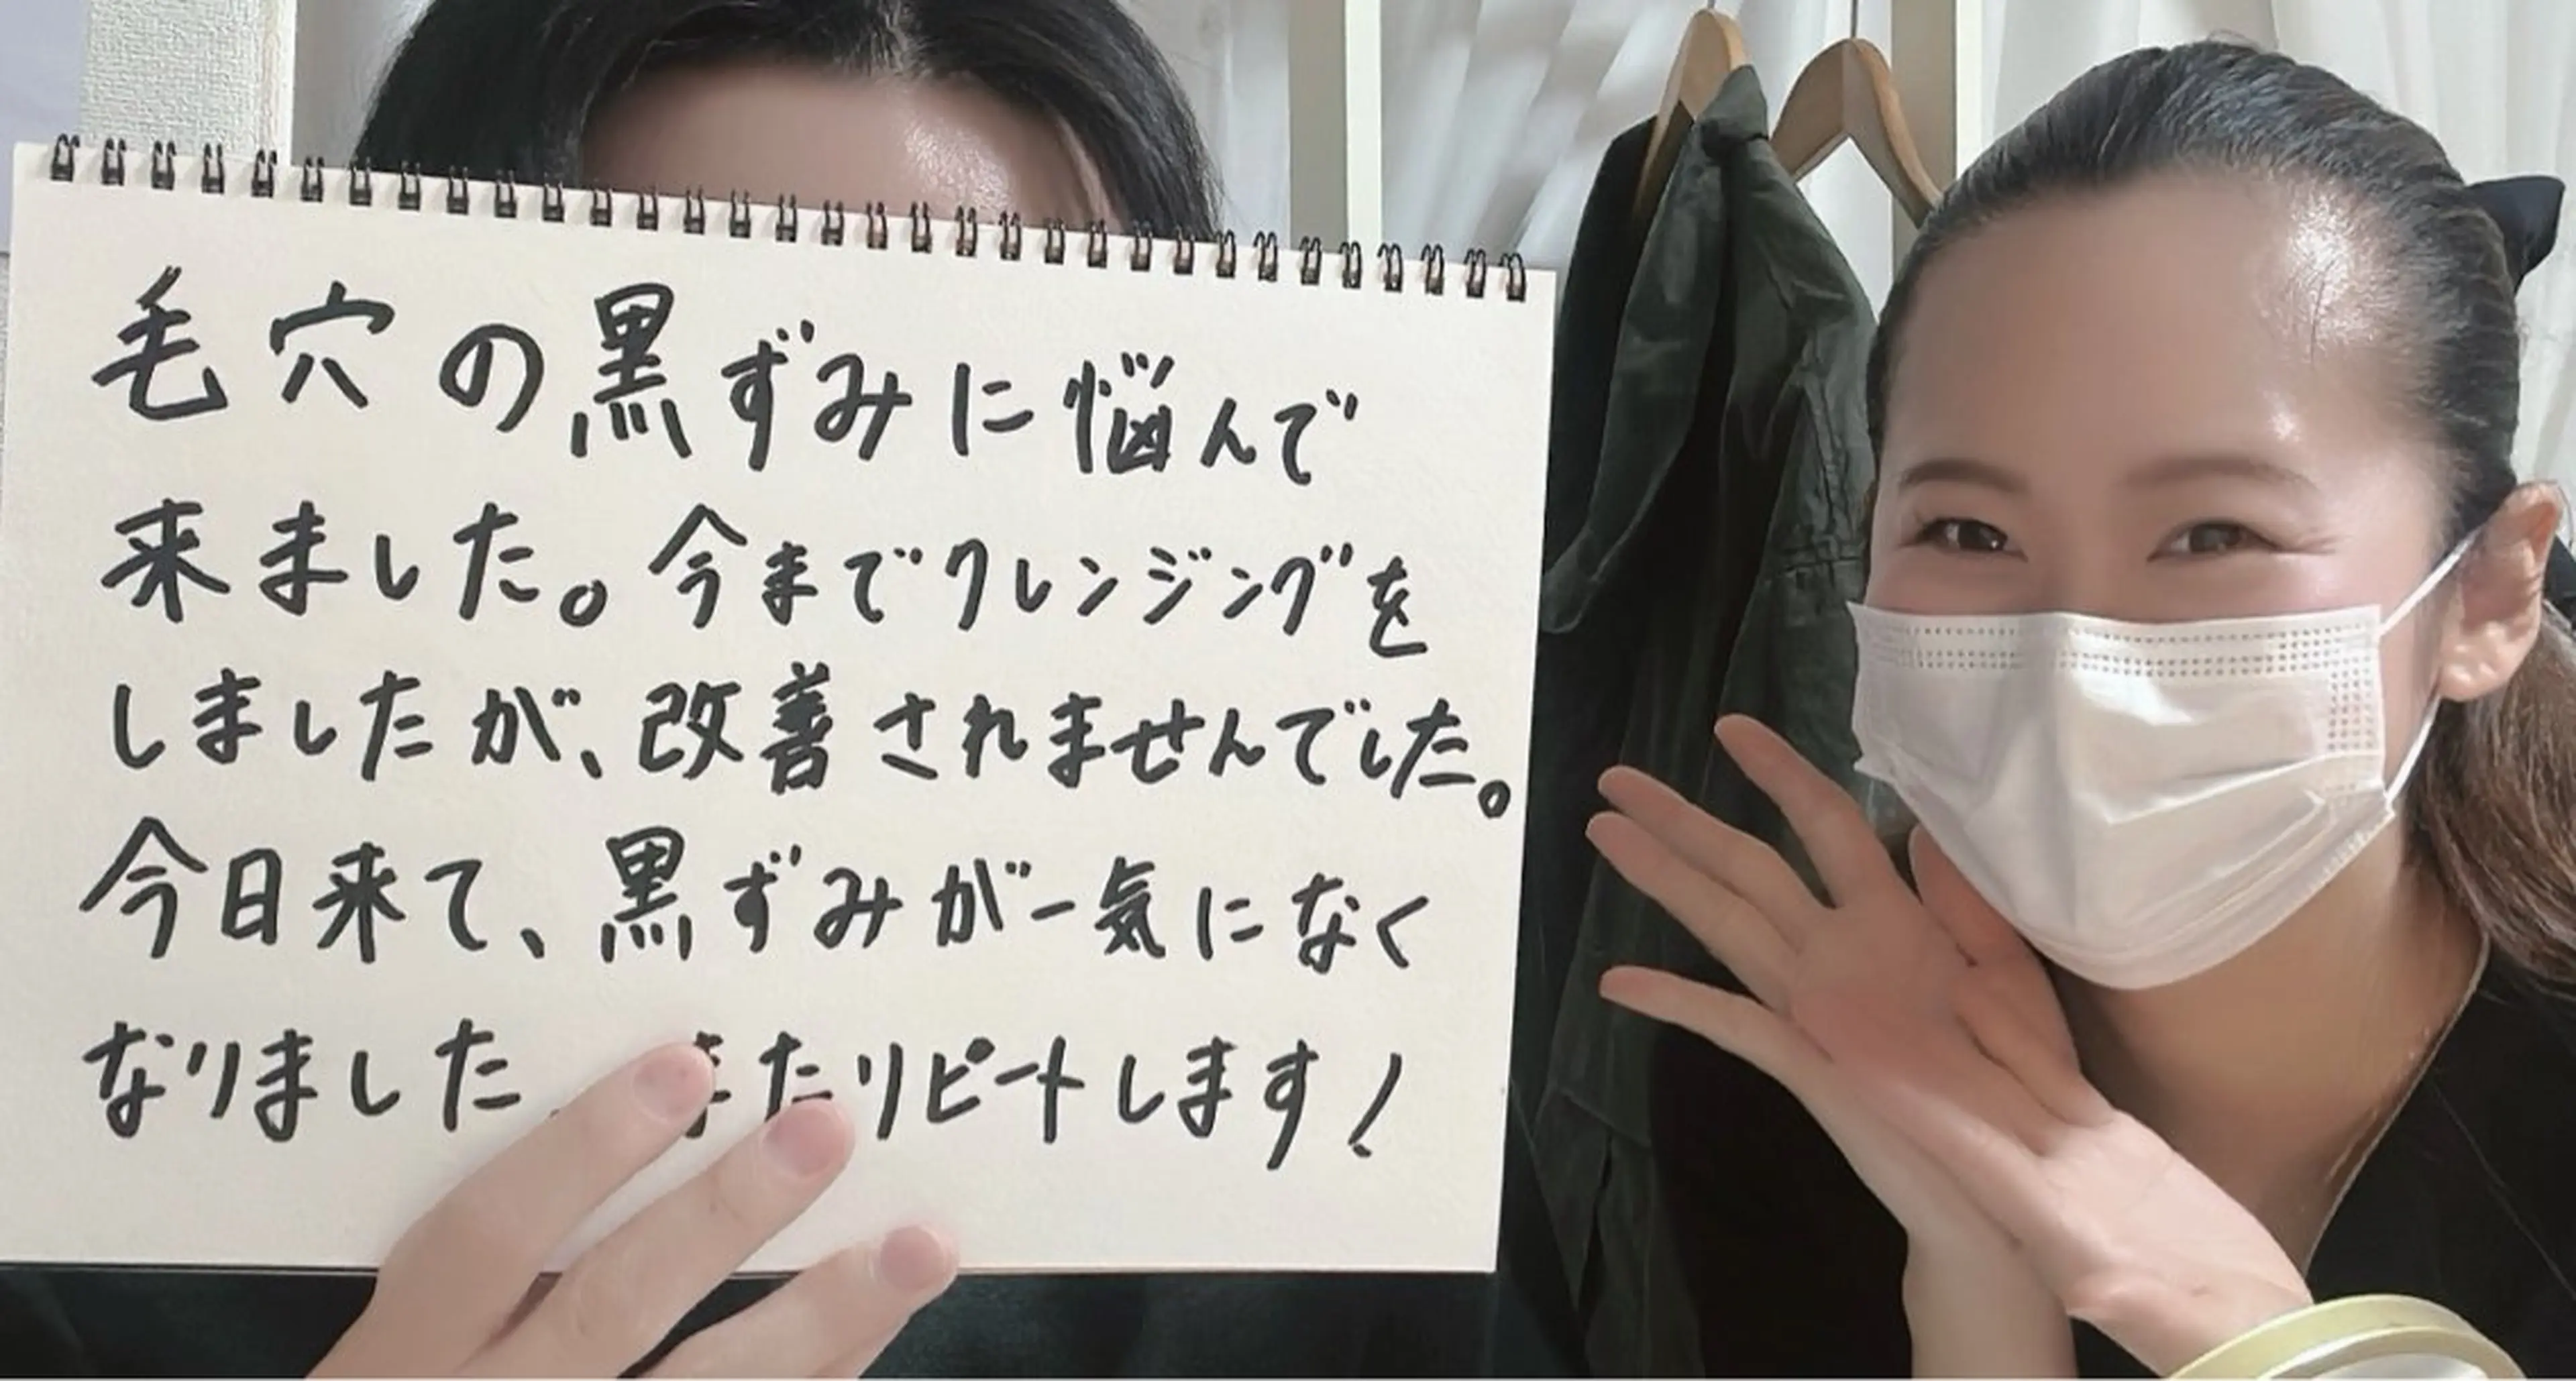 毛穴の黒ずみに悩んで
来ました。今までクレンジングを
しましたが、改善されませんでした。
今日来て、黒ずみが一気になく
なりました またリピートします!